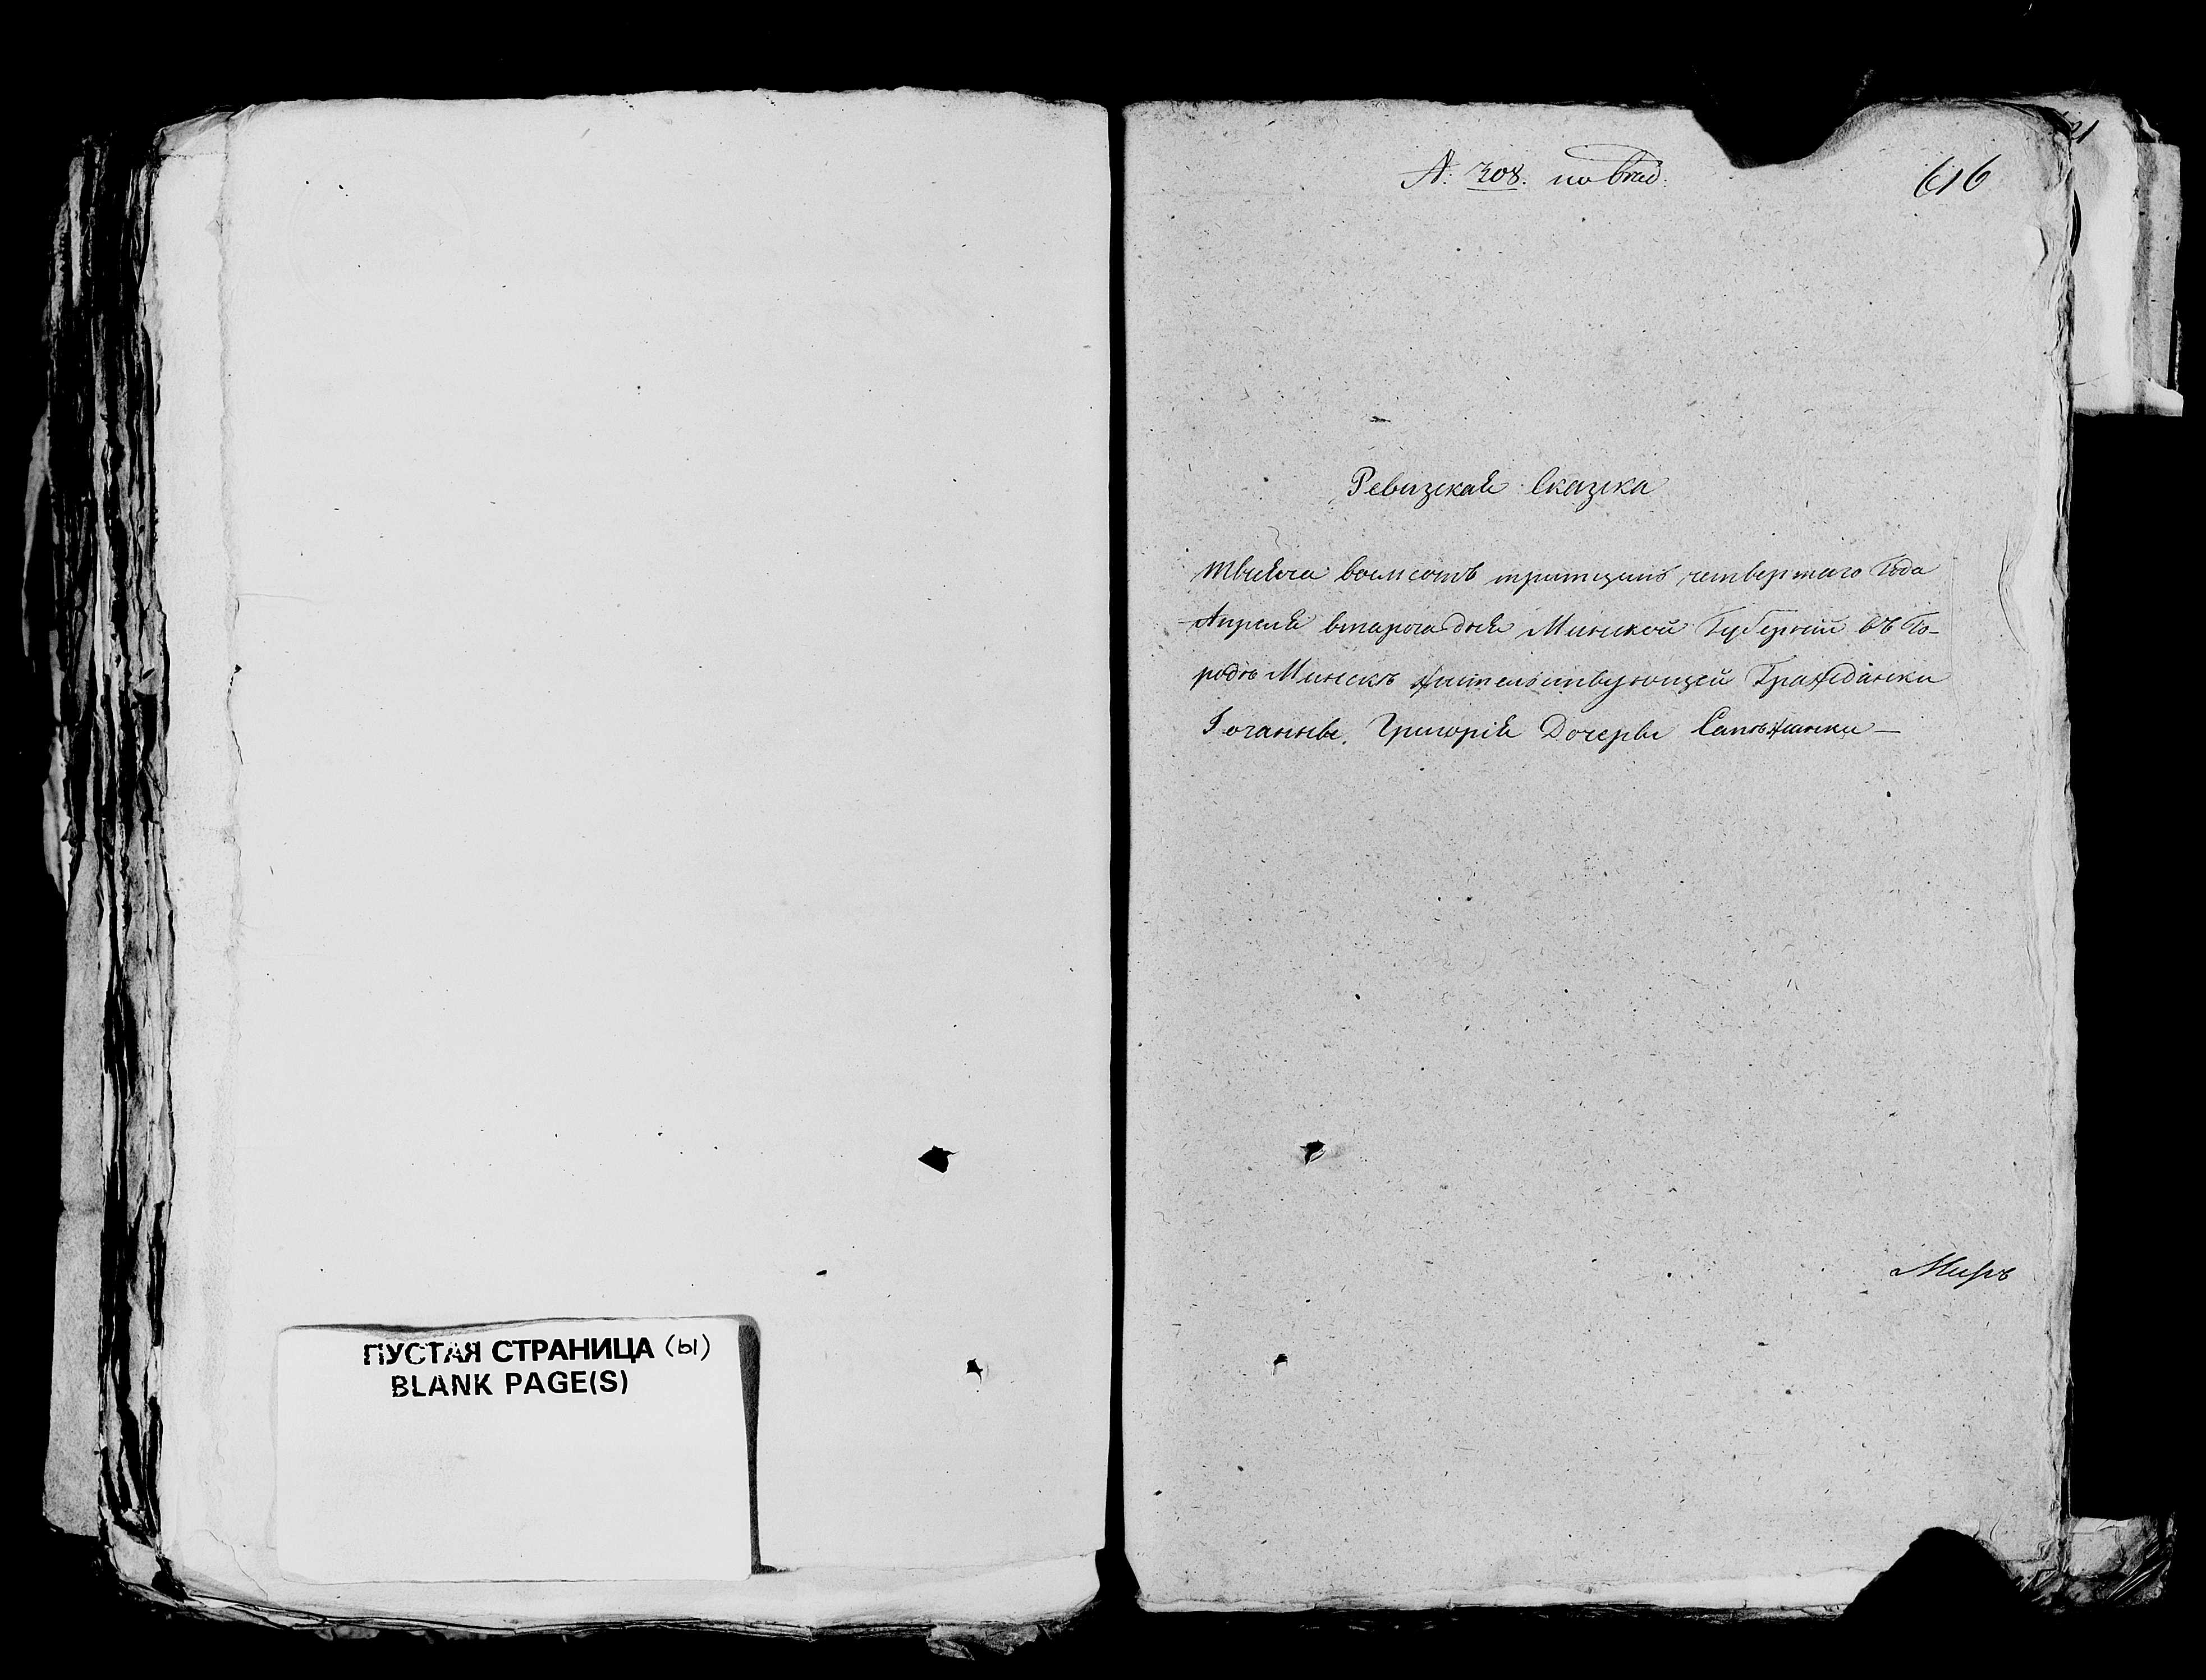 ПУСТАЯ СТРАНИЦА (ы)
BLANK PAGE(S)
№: 308. по
616
Ревизская Сказка
тысяча восмсотъ тритцать четвертаго Года
Апреля втарога дня Минской Губерніи въ Го-
родѣ Минскѣ жительствующей Гражданки
Іоганны Григорія Дочеры Сапѣжинки —